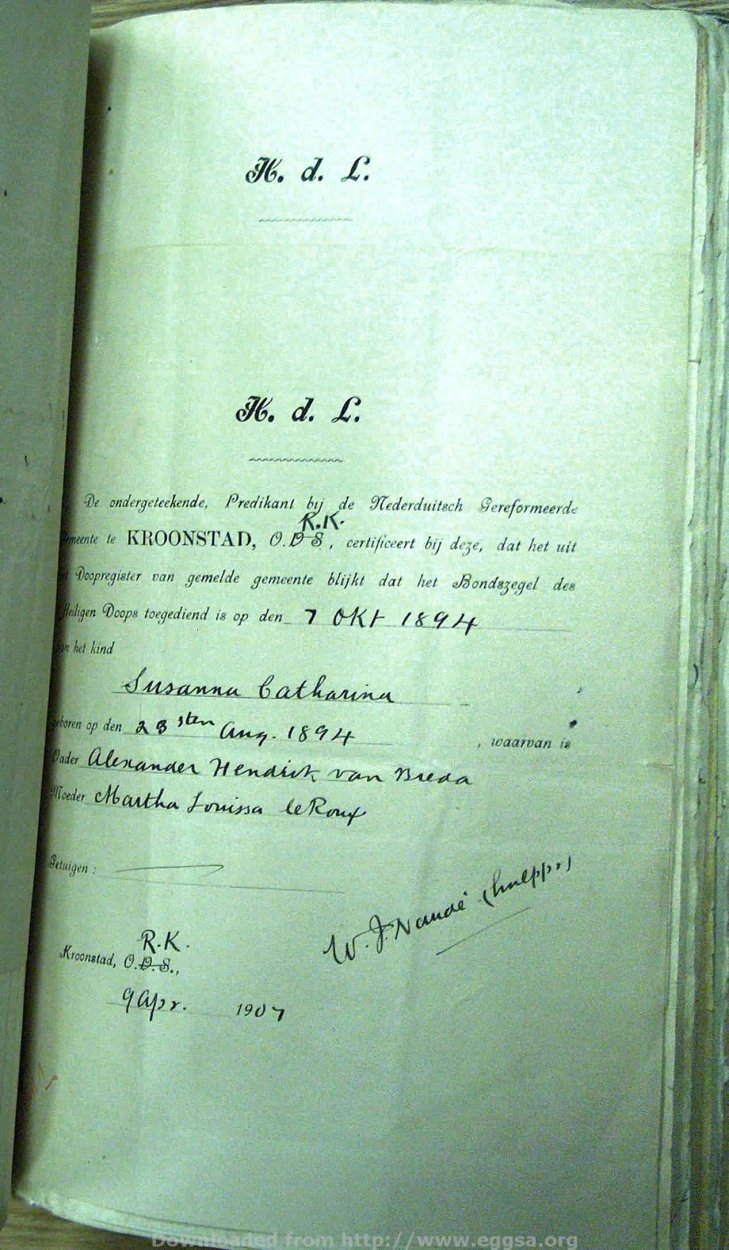 H. d. L.
H. d. L.
De ondergeteekende, Predikant bij de Nederduitsch Gereformeerde
R.K.
meente te KROONSTAD, O.D S, certificeert bij deze, dat het uit
Doopregister van gemelde gemeente blijkt dat het Bondszegel des
Heiligen Doops toegediend is op den 7 Okt 1894
het kind
Susanna Catharina
geboren op den 23 sten Aug. 1894, waarvan is
Vader Alexander Hendrik van Breda
Moeder Martha Louissa le Roux
Getuigen :
W. J. Naudé (hulppr)
R.K.
Kroonstad, O.D.S.,
9 Apr. 1907
Downloaded from http://www.eggsa.org